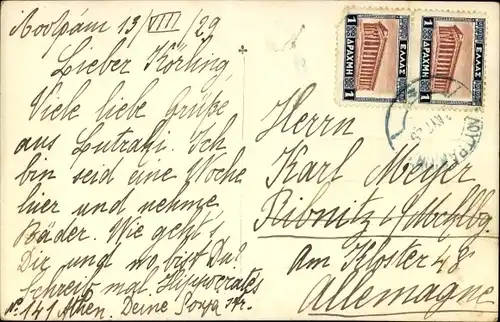 13/VIII/29
Lieber Körling,
Viele liebe Grüße
aus Lutraki. Ich
bin seid eine Woche
hier und nehme
Bäder. Wie geht's
Dir und wo bist Du?
Schreib mal. Hippocrates
No. 141 Athen. Deine
Herrn
Karl Meyer
Ribnitz i/Mecklbg.
Am Kloster 48
Allemagne
1 ΕΛΛΑΣ 1
ΔΡΑΧΜΗ
1 ΕΛΛΑΣ 1
ΔΡΑΧΜΗ